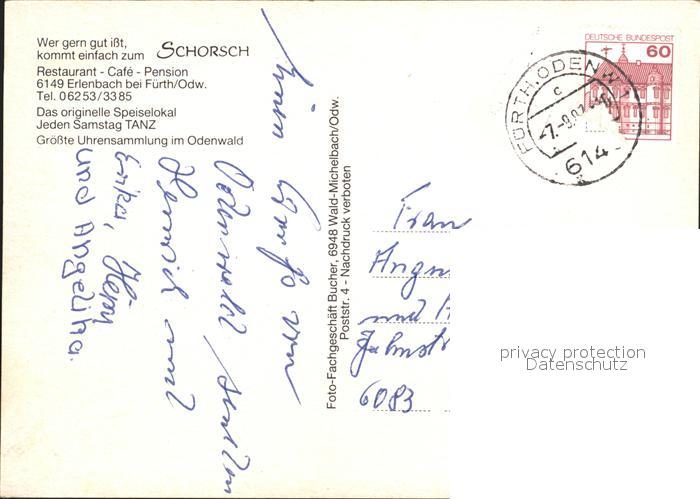 Wer gern gut ißt,
kommt einfach zum SCHORSCH
Restaurant - Café - Pension
6149 Erlenbach bei Fürth/Odw.
Tel. 06253/3385
Das originelle Speiselokal
Jeden Samstag TANZ
Größte Uhrensammlung im Odenwald
Gruß vom
Odenwald senden
Heinrich und
Erika,
und Angelika.
Foto-Fachgeschäft Bucher, 6948 Wald-Michelbach/Odw.
Poststr. 4 - Nachdruck verboten
DEUTSCHE BUNDESPOST
60
FÜRTH, ODENW
c
614
und
6083
privacy protection
Datenschutz